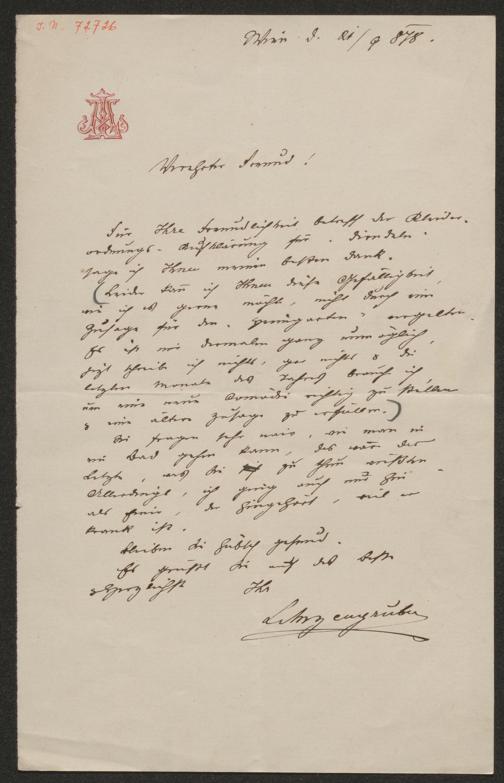 J. N. 72726
Wien d. 21/9 878.
Verehrter Freund!
Für Ihre Freundlichkeit betreff der Kleider-
ordnungs-Aufklärung für "
sage ich Ihnen meinen besten Dank.
(Leider kann ich Ihnen diese Gefälligkeit,
wie ich es gerne möchte, nicht durch eine
Zusage für den "Heimgarten" vergelten.
Es ist mir dermalen ganz unmöglich,
jetzt schreibe ich nichts, gar nichts & die
letzten Monate des Jahres brauch ich,
um eine neue Comödie richtig zu stellen
& eine ältere Zusage zu erfüllen.)
Sie fragen sehr naiv, wie man in
ein Bad gehen kann, das wäre das
Letzte, was Sie zu thun wüßten.
Allerdings, ich ging auch nur hin
als Einer, der hingehört, weil er
krank ist.
Bleiben Sie hübsch gesund.
Es grüßt Sie auf das Beste
& Herzlichste Ihr
LAnzengruber